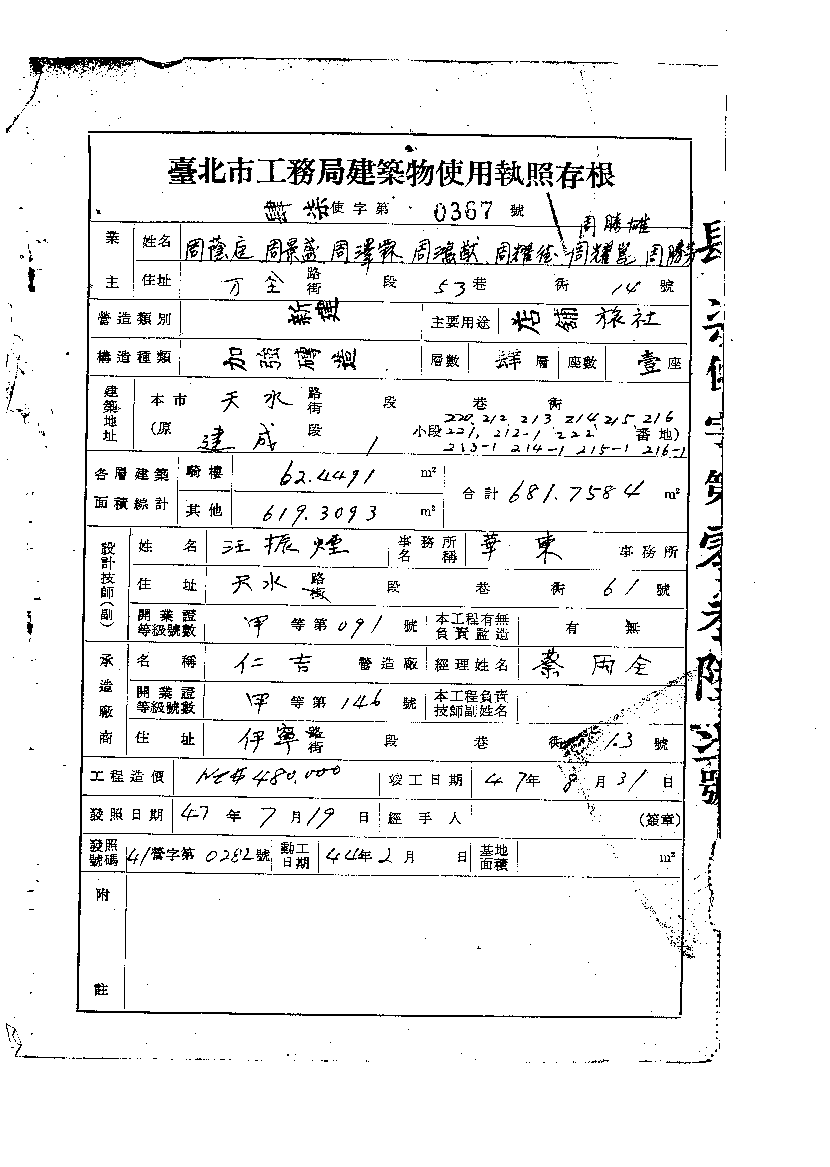 臺北市工務局建築物使用執照存根
肆柒使字第 0367 號
周勝雄
業主 姓名 周蔭庭 周景盛 周澤霖 周鴻猷 周耀德 周耀崑 周勝
住址 万全 路街 段 53巷 衖 14號
營造類別 新建 主要用途 店舖旅社
構造種類 加強磚造 層數 肆層 座數 壹座
建築地址 本市 天水 路街 段 巷 衖
220, 212, 213, 214, 215, 216
(原 建成 段 1 小段 221, 212-1, 222 番地)
213-1 214-1 215-1 216-1
各層建築面積綜計 騎樓 62.4491 m² 合計 681.7584 m²
其他 619.3093 m²
設計技師(副) 姓名 汪振煙 事務所名稱 華東 事務所
住址 天水 路街 段 巷 衖 61號
開業證等級號數 甲等第091號 本工程有無負責監造 有 無
承造廠商 名稱 仁吉 營造廠 經理姓名 蔡丙全
開業證等級號數 甲等第146號 本工程負責技師副姓名
住址 伊寧 路街 段 巷 衖 13號
工程造價 NT$480.000 竣工日期 47年8月31日
發照日期 47年7月19日 經手人 (簽章)
發照號碼 41營字第0282號 動工日期 44年2月 日 基地面積 m²
附註
使字第零叁陸柒號